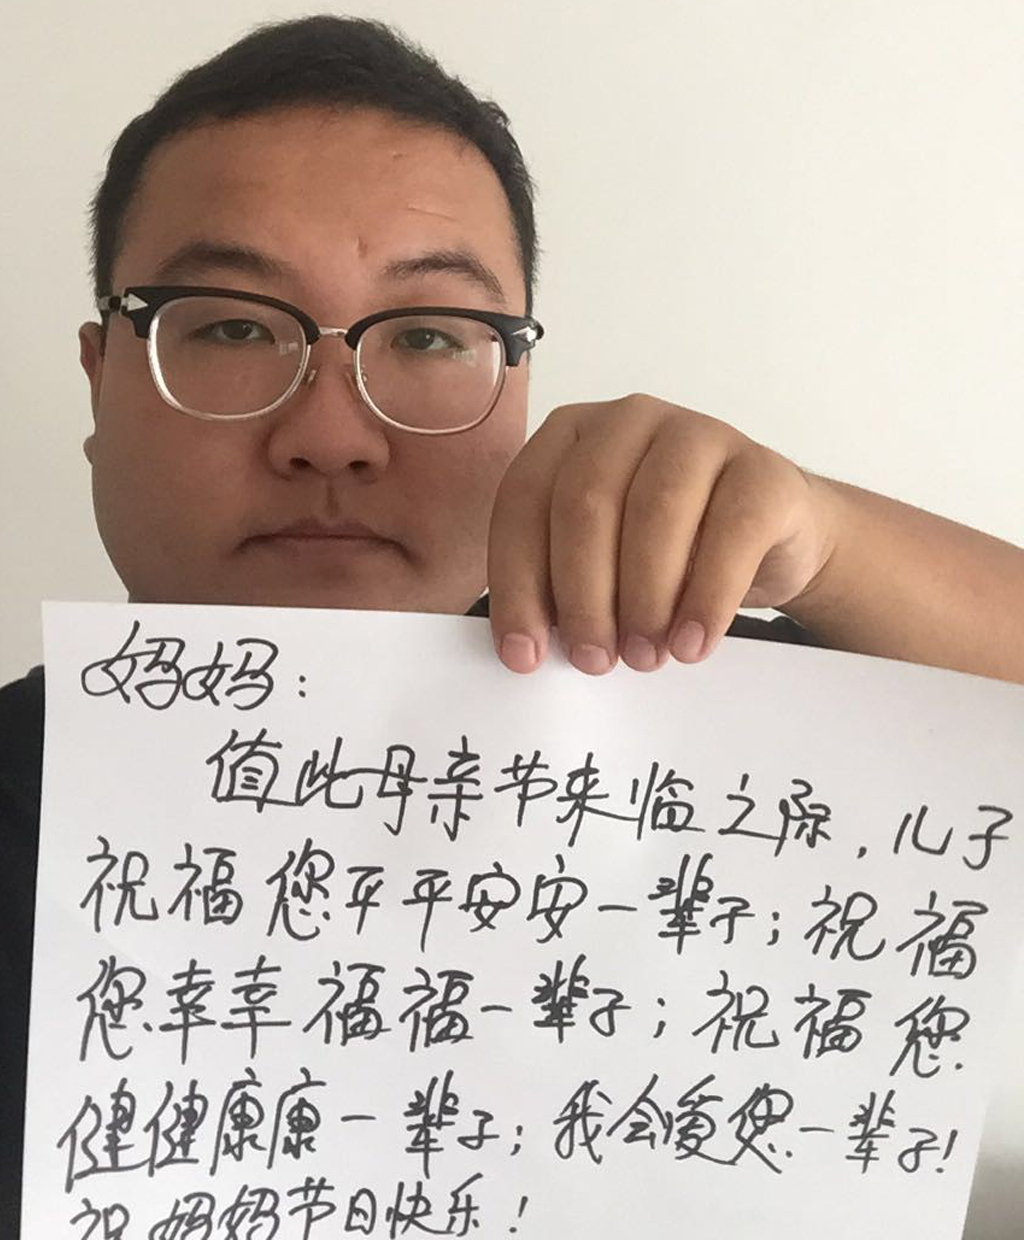 妈妈：
值此母亲节来临之际，儿子
祝福您平平安安一辈子；祝福
您幸幸福福一辈子；祝福您
健健康康一辈子；我会爱您一辈子！
祝妈妈节日快乐！